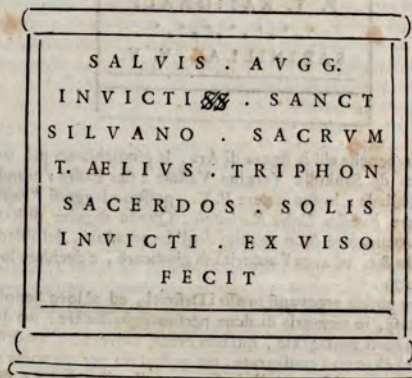 SALVIS . AVGG.
INVICTI . SANCT
SILVANO . SACRVM
T. AELIVS . TRIPHON
SACERDOS . SOLIS
INVICTI . EX VISO
FECIT